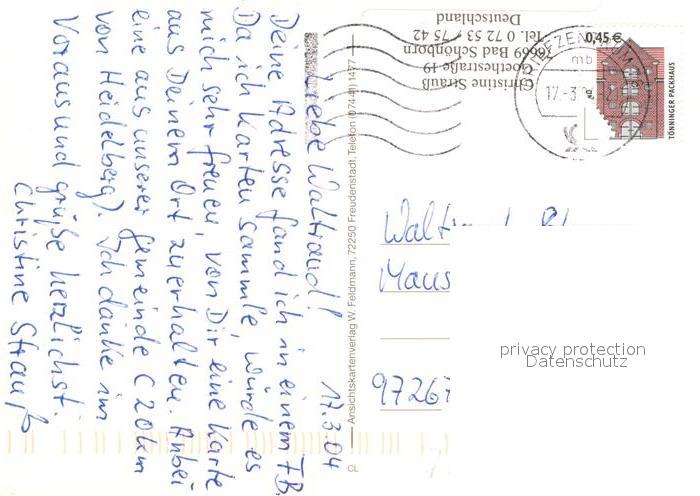 17.3.04
Liebe Waltraud!
Deine Adresse fand ich in einem FB.
Da ich Karten sammle, würde es
mich sehr freuen, von Dir eine Karte
aus Deinem Ort zu erhalten. Anbei
eine aus unserer Gemeinde (20km
von Heidelberg). Ich danke im
Voraus und grüße herzlichst.
Christine Strauß
Ansichtskartenverlag W. Feldmann, 72250 Freudenstadt, Telefon (07441) 1477
CL
Christine Strauß
Goethestraße 19
76669 Bad Schönborn
Tel. 0 72 53 / 75 42
Deutschland
BRIEFZENTRUM
mb
17.-3.
0,45 €
TÖNNINGER PACKHAUS
97267
privacy protection
Datenschutz